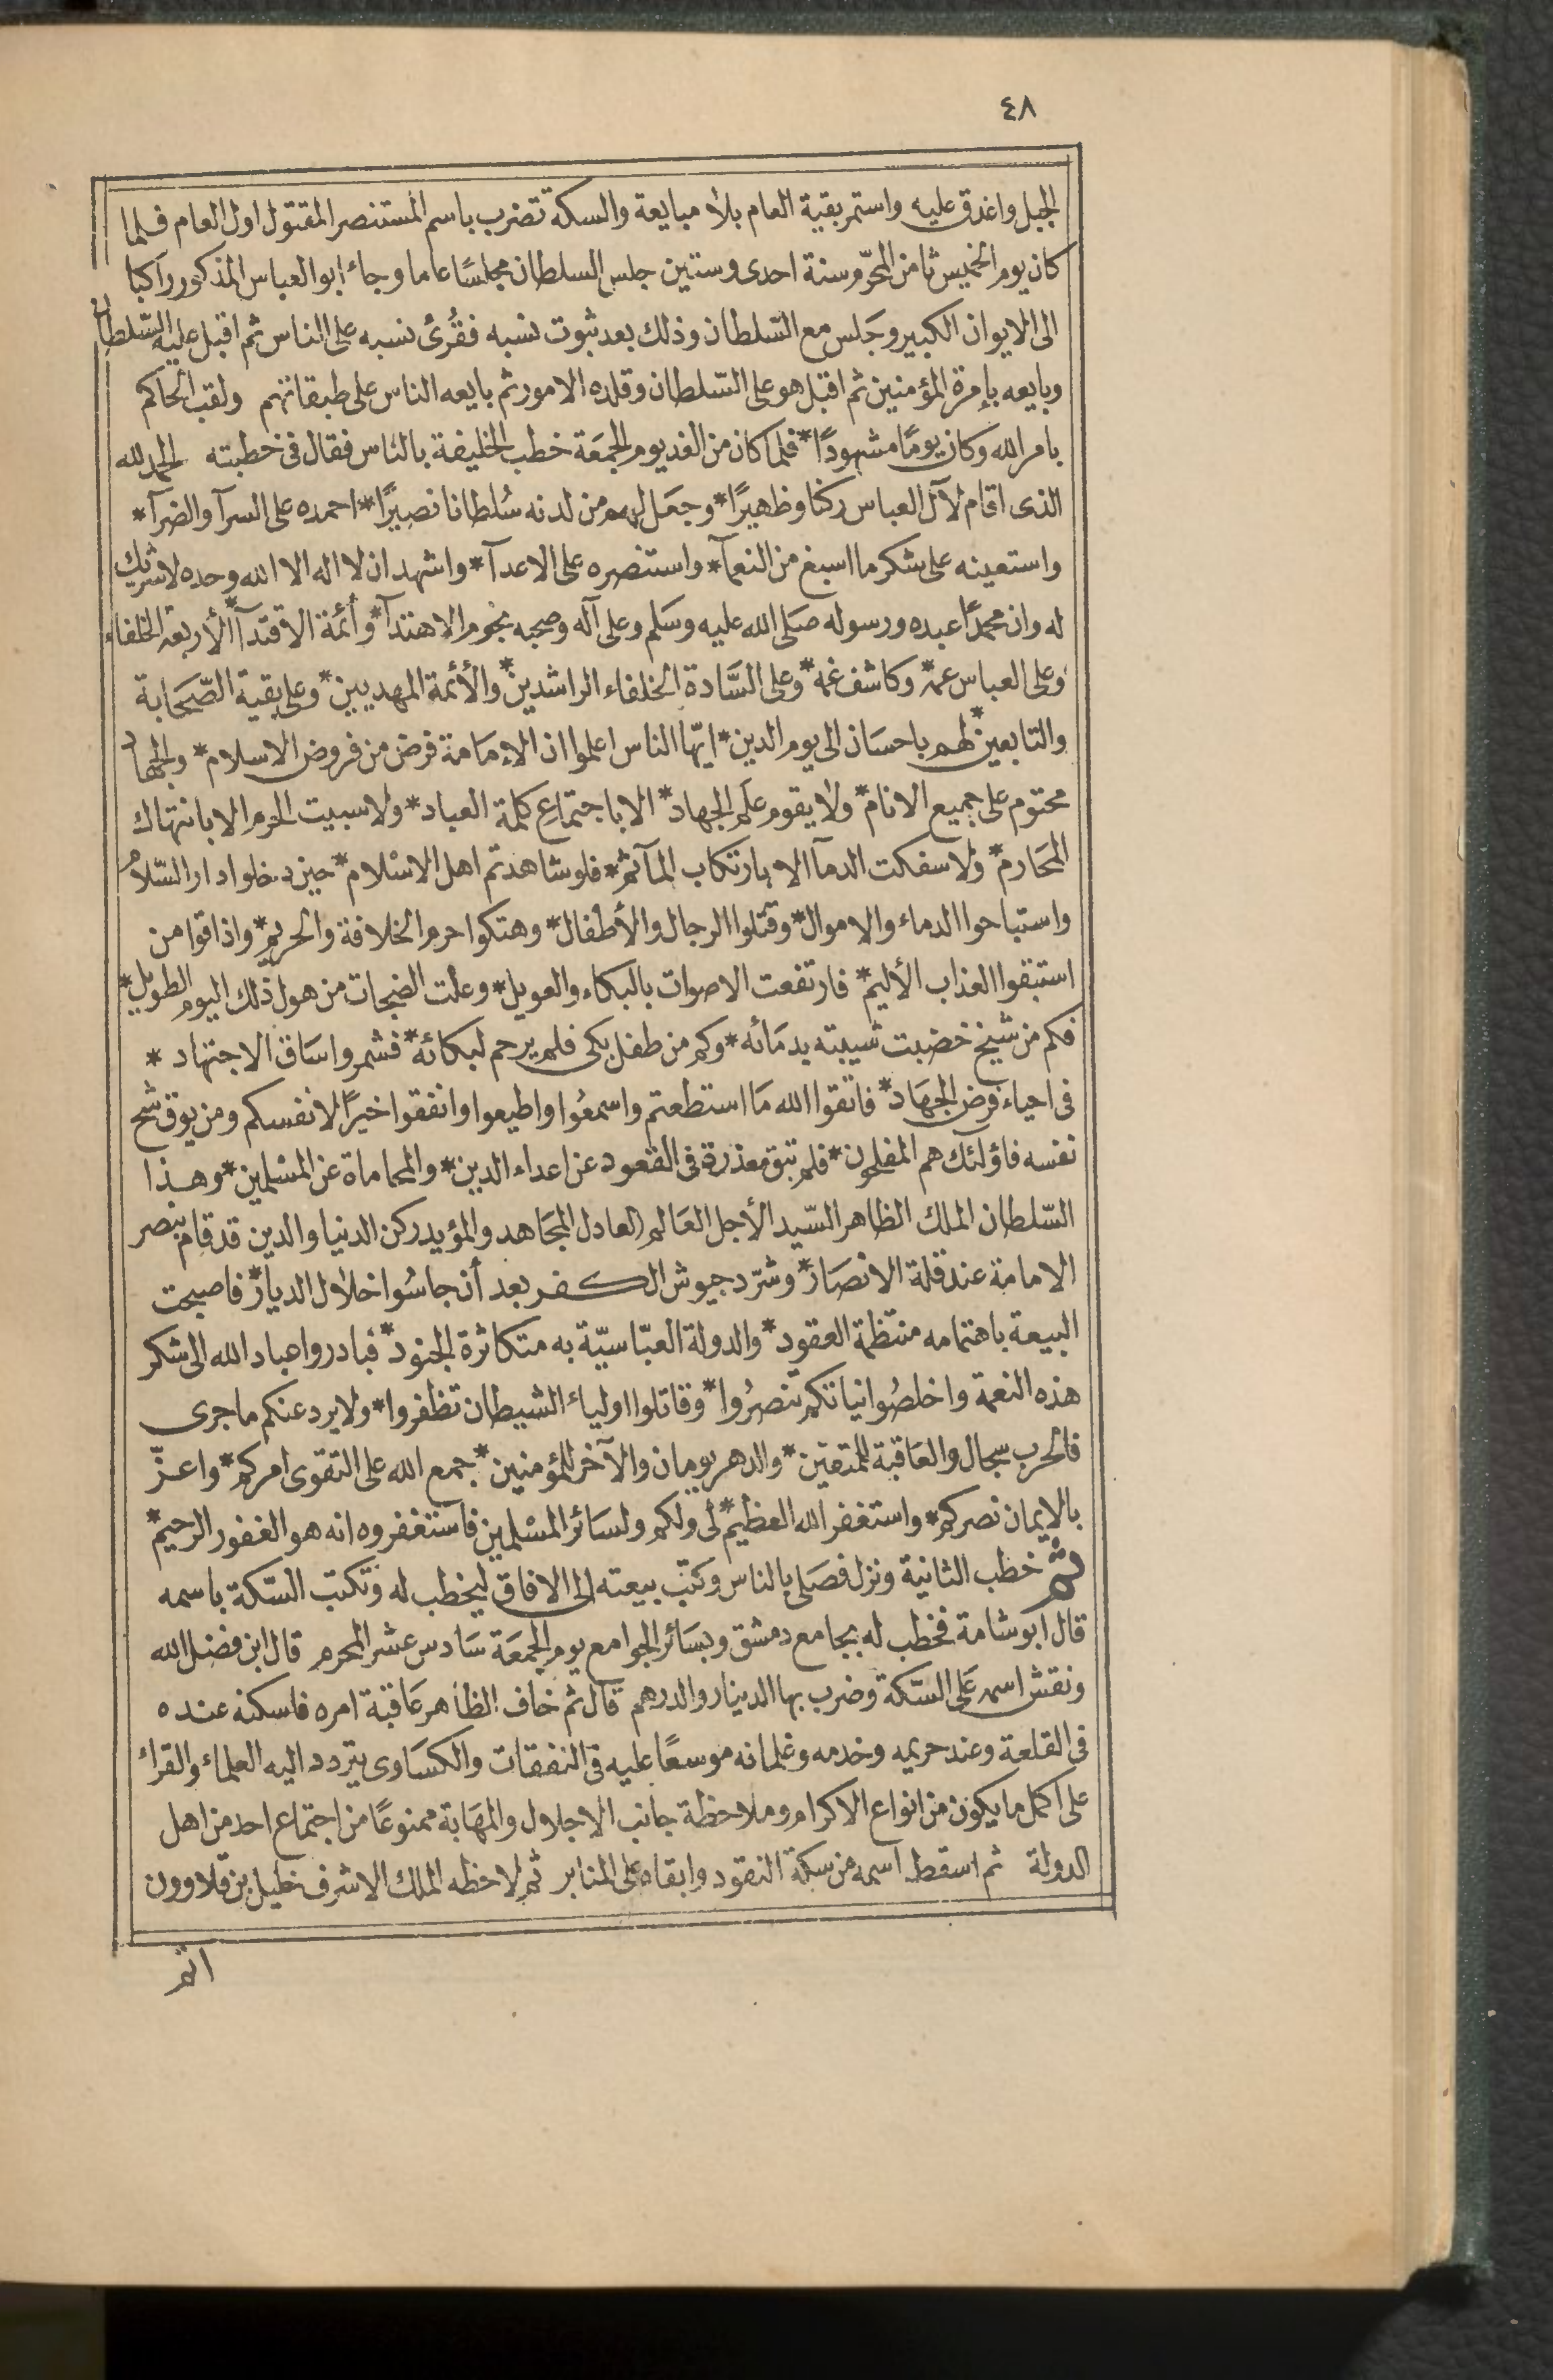 ٤٨
الجبل واغدق عليه واستمر بقية العام بلا مبايعة والسكة تضرب باسم المستنصر المقتول اول العام فلما
كان يوم الخميس ثامن المحرّم سنة احدى وستين جلس السلطان مجلسًا عاما وجاء ابو العباس المذكور راكبا
الى الايوان الكبير وجَلس مع السّلطان وذلك بعد ثبوت نسبه فقُرئ نسبه على الناس ثم اقبل عليه السّلطان
وبايعه بإمرة المؤمنين ثم اقبل هو على السّلطان وقلده الامور ثم بايعه الناس على طبقاتهم ولقب الحاكم
بامر الله وكان يومًا مشهودًا* فلما كان من الغد يوم الجمَعة خطب الخليفة بالناس فقال فى خطبته الحمد لله
الذى اقام لآل العباس ركنا وظهيرًا* وجعَل لهم من لدنه سُلطانا نصيرًا* احمده على السرآ والضرآ*
واستعينه على شكر ما اسبغ من النعمآ* واستنصره على الاعدآ* واشهد ان لا اله الا الله وحده لا شريك
له وان محمدًا عبده ورسوله صَلى الله عليه وسَلم وعلى آله وصحبه نجوم الاهتدآ* وأئمة الاقتدآ* الأربعة الخلفاء
وعلى العباس عمه* وكاشف غمه* وعلى السَّادة الخلفاء الراشدين* والأئمة المهديين* وعلى بقية الصّحَابة
والتابعين* لهم باحسَان الى يوم الدين* ايّها الناس اعلموا ان الإمَامة فرض من فروض الاسلام* والجهاد
محتوم على جميع الانام* ولا يقوم علَم الجهاد* الا باجتماع كلمة العباد* ولا سبيت الحرم الا بانتهاك
المحَارم* ولا سفكت الدمآ الا بارتكاب المآثم* فلو شاهدتم اهل الاسْلام* حين دخلوا دار السّلام
واستباحوا الدماء والاموال* وقتلوا الرجال والأطفال* وهتكوا حرم الخلافة والحريم* واذاقوا من
استبقوا العذاب الأليم* فارتفعت الاصوات بالبكاء والعويل* وعلت الضجات من هول ذلك اليوم الطويل*
فكم من شيخ خضبت شيبته بدمَائه* وكم من طفل بكى فلم يرحم لبكائه* فشمروا سَاق الاجتهاد*
فى احياء فرض الجهَاد* فاتقوا الله مَا استطعتم واسمعُوا واطيعوا وانفقوا خيرًا لانفسكم ومن يوق شح
نفسه فاؤلئك هم المفلحون* فلم تبق معذرة فى القعود عن اعداء الدين* والمحاماة عن المسْلمين* وهذا
السّلطان الملك الظاهر السّيد الأجل العَالم العادل المجَاهد والمؤيد ركن الدنيا والدين قد قام بنصر
الامامة عند قلة الانصَار* وشرّد جيوش الكفر بعد أن جاسُوا خلال الديار* فاصبحت
البيعة باهتمامه منتظمة العقود* والدولة العبّاسيّة به متكاثرة الجنود* فبادروا عباد الله الى شكر
هذه النعمة واخلصُوا نياتكم تنصرُوا* وقاتلوا اولياء الشيطان تظفروا* ولا يردعنكم ما جرى
فالحرب سجال والعَاقبة للمتقين* والدهر يومان والآخر للمؤمنين* جمع الله على التقوى امركم* واعزّ
بالإيمان نصركم* واستغفر الله العظيم* لى ولكم ولسَائر المسْلمين فآستغفروه انه هو الغفور الرحيم*
ثم خطب الثانية ونزل فصَلى بالناس وكتب ببيعته إلى الافاق ليخطب له وتكتب السّكة باسمه
قال ابو شامة فخطب له بجامع دمشق وبسَائر الجوامع يوم الجمَعة سَادس عشر المحرم قال ابن فضل الله
ونقش اسمه عَلى السّكة وضرب بها الدينار والدرهم قال ثم خاف الظاهر عَاقبة امره فاسكنه عنده
فى القلعة وعند حريمه وخدمه وغلمانه موسعًا عليه فى النفقات والكسَاوى يتردد اليه العلماء والقراء
على اكمل ما يكون من انواع الاكرام وملاحظة جانب الاجلال والمهَابة ممنوعًا من اجتماع احد من اهل
الدولة ثم اسقط اسمه من سكة النقود وابقاه على المنابر ثم لاحظه الملك الاشرف خليل بن قلاوون
اتم